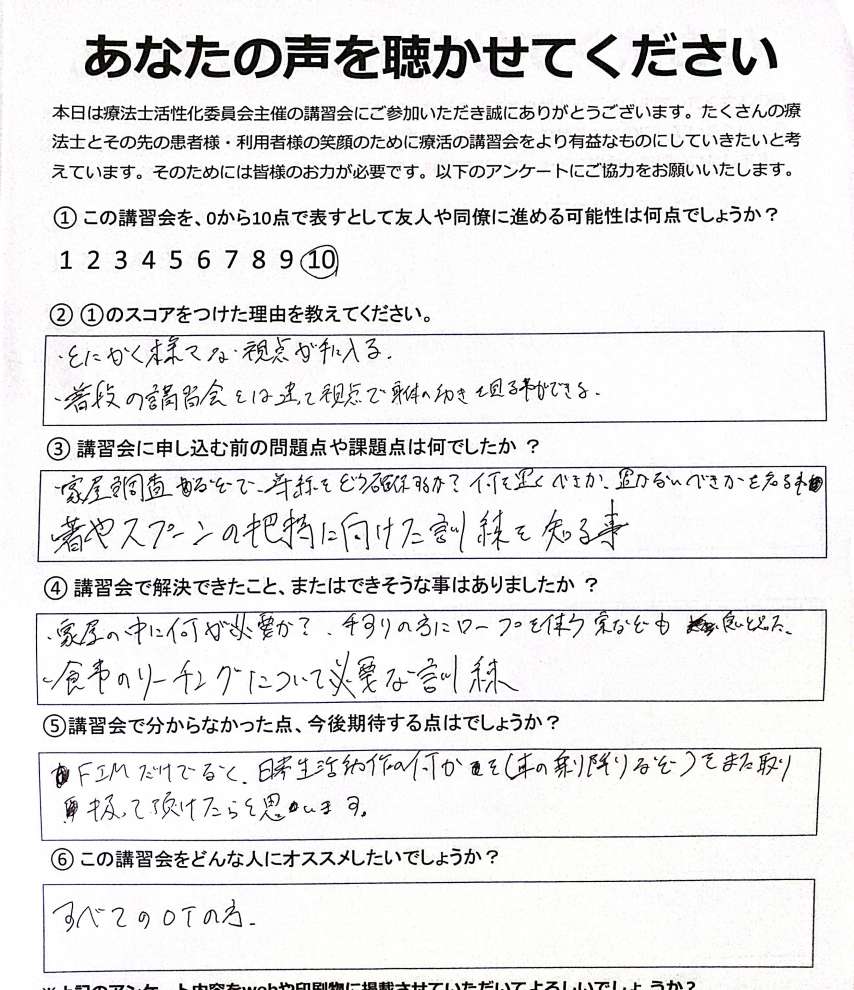 あなたの声を聴かせてください
本日は療法士活性化委員会主催の講習会にご参加いただき誠にありがとうございます。たくさんの療
法士とその先の患者様・利用者様の笑顔のために療活の講習会をより有益なものにしていきたいと考
えています。そのためには皆様のお力が必要です。以下のアンケートにご協力をお願いいたします。
① この講習会を、0から10点で表すとして友人や同僚に進める可能性は何点でしょうか？
1 2 3 4 5 6 7 8 9 10
② ①のスコアをつけた理由を教えてください。
・とにかく様々な視点が手に入る。
・普段の講習会とは違って視点で身体の動きを見る事ができる。
③ 講習会に申し込む前の問題点や課題点は何でしたか ？
・家屋調査などで、導線をどう確保するか？何を置くべきか、置かないべきかを知る事
箸やスプーンの把持に向けた訓練を知る事
④ 講習会で解決できたこと、またはできそうな事はありましたか ？
・家屋の中に何が必要か？、手すりの方にロープを使う案なども 良いと思った。
・食事のリーチングについて必要な訓練
⑤講習会で分からなかった点、今後期待する点はでしょうか？
FIMだけでなく、日常生活動作の何かを(車の乗り降りなど)をまた取り
扱って頂けたらと思います。
⑥ この講習会をどんな人にオススメしたいでしょうか？
すべてのOTの方。
※上記のアンケート内容をwebや印刷物に掲載させていただいてよろしいでしょうか？